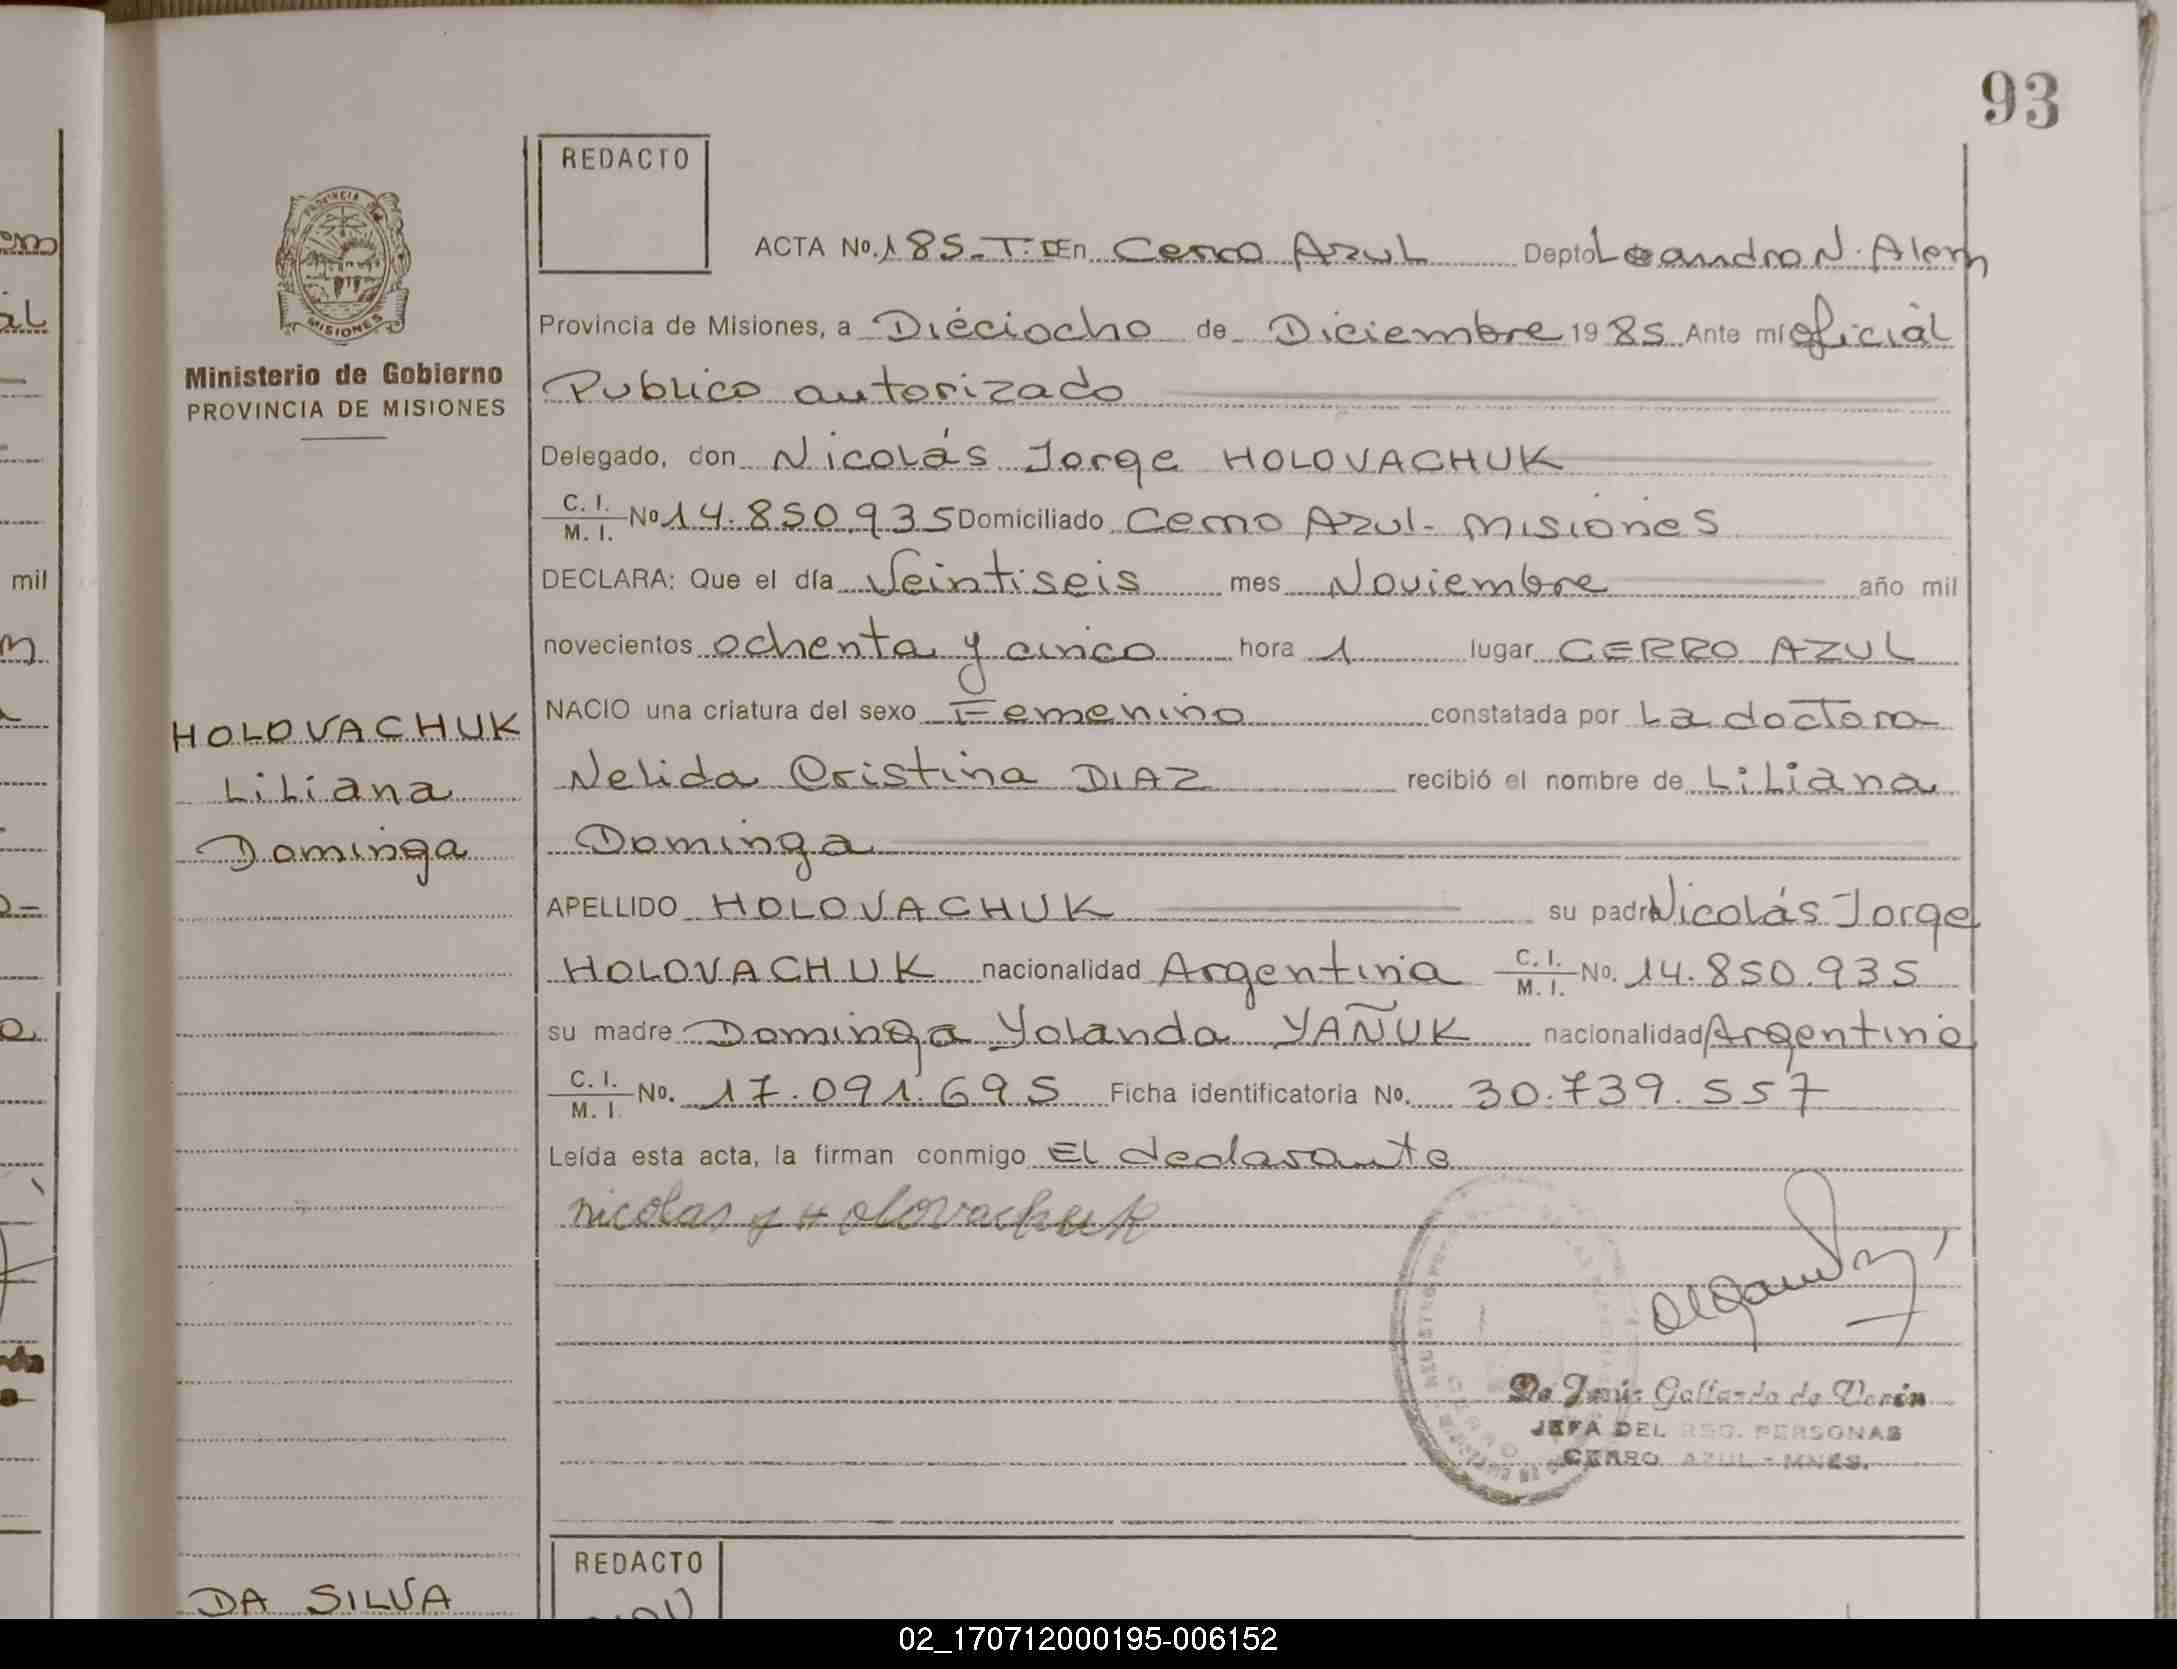 93
REDACTO
ACTA No. 185-T: I En Cerro Azul Depto Leandro N. Alem
PROVINCIA DE
MISIONES
Provincia de Misiones, a Dieciocho de Diciembre 1985 Ante mí oficial
Ministerio de Gobierno
PROVINCIA DE MISIONES
Publico autorizado
Delegado, don Nicolás Jorge HOLOVACHUK
C. I.
M. I. No 14.850.935 Domiciliado Cerro Azul- Misiones
DECLARA: Que el día Veintiseis mes Noviembre año mil
novecientos ochenta y cinco hora 1 lugar CERRO AZUL
NACIO una criatura del sexo Femenino constatada por La doctora
HOLOVACHUK
Liliana
Dominga
Nelida Cristina DIAZ recibió el nombre de Liliana
Dominga
APELLIDO HOLOVACHUK su padre Nicolás Jorge
HOLOVACHUK nacionalidad Argentina C. I.
M. I. No. 14.850.935
su madre Dominga Yolanda YAÑUK nacionalidad Argentina
C. I.
M. I. No. 17.091.695 Ficha identificatoria No. 30.739.557
Leída esta acta, la firman conmigo El declarante
nicolas j Holovachuk
Gallardo de
JEFA DEL REG. PERSONAS
CERRO AZUL - MNES.
REDACTO
DA SILVA
mil
02_170712000195-006152